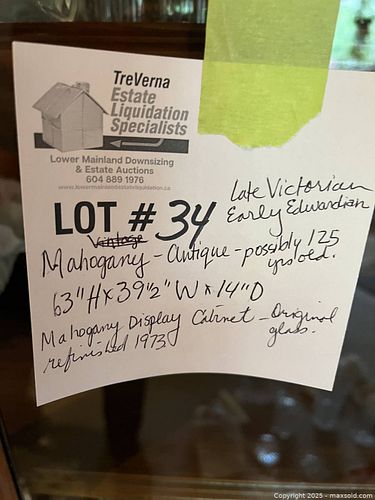 TreVerna
Estate
Liquidation
Specialists
Lower Mainland Downsizing
& Estate Auctions
604 889 1976
www.lowermainlandestateliquidation.ca
Late Victorian
Early Edwardian
LOT # 34
Vintage
Mahogany - Antique - possibly 125
yrs old.
63"H x 39½"W x 14"D
Mahogany Display Cabinet - Original
glass.
refinished 1973.
Copyright 2025 - maxsold.com